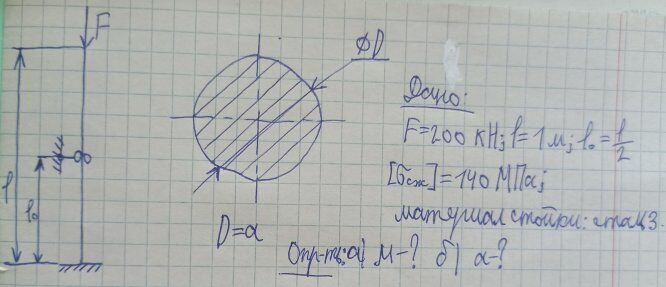 F
l
l₀
ϕD
D=a
Дано:
F=200 кН; l=1 м; l₀ = l/2
[σсж]=140 МПа;
материал стойки: сталь 3.
Опр-ть: а) μ-? б) a-?